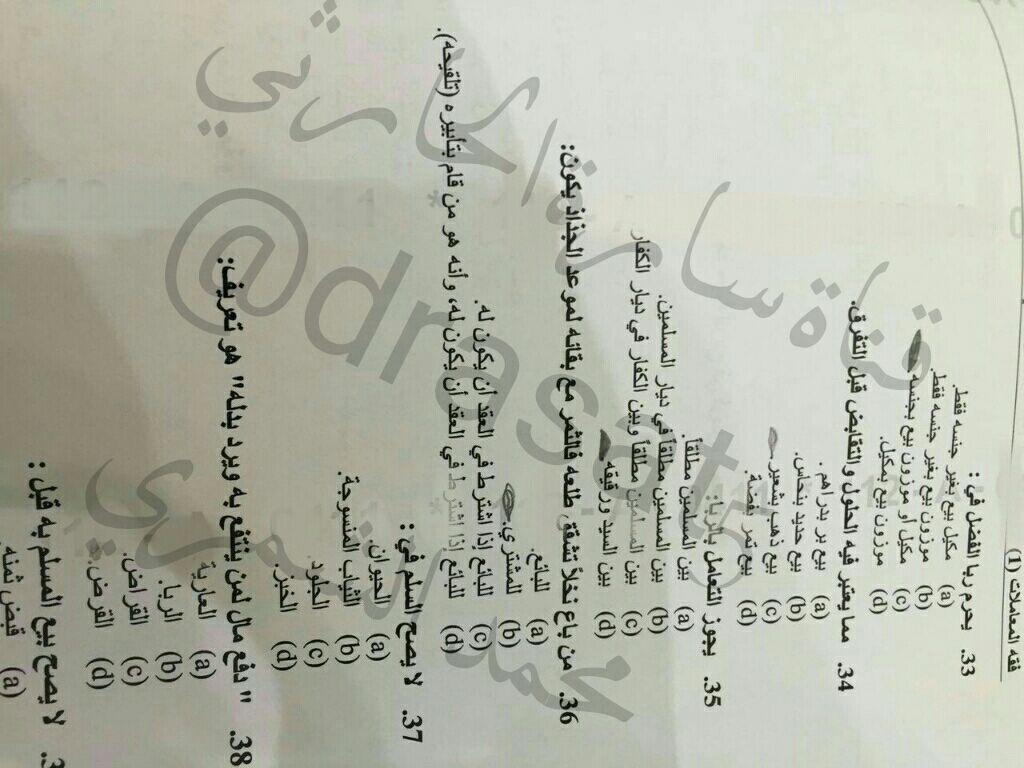 فقه المعاملات (1)
33. يحرم ربا الفضل في :
(a) مكيل بيع بغير جنسه فقط.
(b) موزون بيع بغير جنسه فقط.
(c) مكيل أو موزون بيع بجنسه
(d) موزون بيع بمكيل.
34. مما يعتبر فيه الحلول والتقابض قبل التفرق.
(a) بيع بر بدراهم.
(b) بيع حديد بنحاس.
(c) بيع ذهب بشعير
(d) بيع تمر بفضة.
35. يجوز التعامل بالربا:
(a) بين المسلمين مطلقاً.
(b) بين المسلمين مطلقاً في ديار المسلمين.
(c) بين المسلمين مطلقاً وبين الكفار في ديار الكفار
(d) بين السيد ورقيقه
36. من باع نخلاً تشقق طلعه فالثمر مع بقائه لموعد الجذاذ يكون:
(a) للبائع.
(b) للمشتري.
(c) للبائع إذا اشترط في العقد أن يكون له.
(d) للبائع إذا اشترط في العقد أن يكون له، وأنه هو من قام بتأبيره (تلقيحه).
37. لا يصح السلم في:
(a) الحيوان.
(b) الثياب المنسوجة.
(c) الجلود.
(d) الخبز.
38. " دفع مال لمن ينتفع به ويرد بدله" هو تعريف:
(a) العارية
(b) الربا.
(c) القراض.
(d) القرض.
لا يصح بيع المسلم به قبل :
(a) قبض ثمنه
قناة سارة الحارثي
@drasat
محمد الشمري